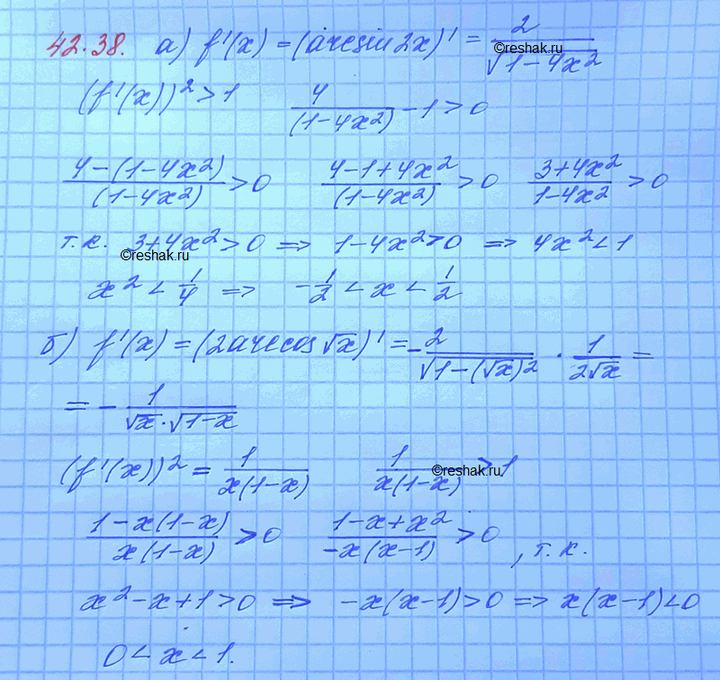 42.38. а) f'(x) = (arcsin 2x)' = 2/√(1-4x²)
©reshak.ru
(f'(x))² > 1    4/(1-4x²) - 1 > 0
(4-(1-4x²))/(1-4x²) > 0    (4-1+4x²)/(1-4x²) > 0    (3+4x²)/(1-4x²) > 0
т.к. 3+4x² > 0 ⇒ 1-4x² > 0 ⇒ 4x² < 1
©reshak.ru
x² < 1/4 ⇒ -1/2 < x < 1/2
б) f'(x) = (2arccos √x)' = -2/√(1-(√x)²) · 1/(2√x) =
= - 1/(√x · √(1-x))
(f'(x))² = 1/(x(1-x))    1/(x(1-x)) > 1
©reshak.ru
(1-x(1-x))/(x(1-x)) > 0    (1-x+x²)/(-x(x-1)) > 0, т.к.
x²-x+1 > 0 ⇒ -x(x-1) > 0 ⇒ x(x-1) < 0
0 < x < 1.